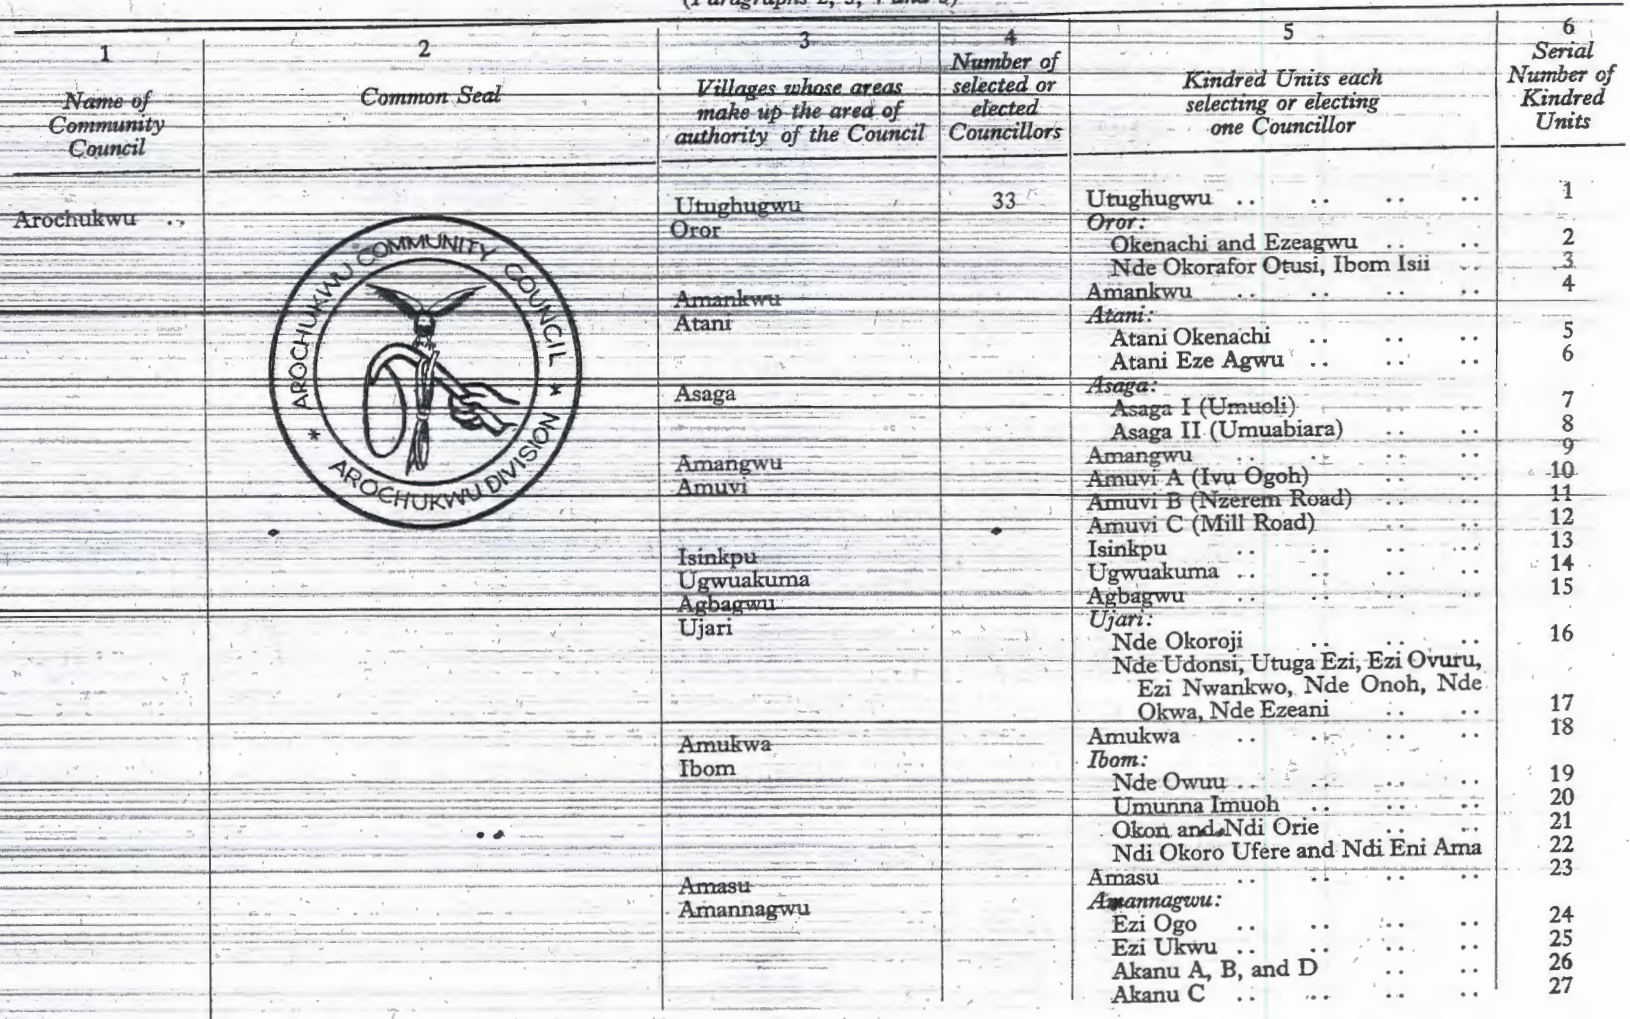 (Paragraphs 2, 3, 4 and
1 2 3 4 5 6
Name of Community Council
Common Seal
Villages whose areas make up the area of authority of the Council
Number of selected or elected Councillors
Kindred Units each selecting or electing one Councillor
Serial Number of Kindred Units
Arochukwu ..
* AROCHUKWU COMMUNITY COUNCIL *
AROCHUKWU DIVISION
Utughugwu 33 Utughugwu .. .. .. .. 1
Oror Oror:
Okenachi and Ezeagwu .. .. 2
Nde Okorafor Otusi, Ibom Isii .. 3
Amankwu Amankwu .. .. .. .. 4
Atani Atani:
Atani Okenachi .. .. .. 5
Atani Eze Agwu .. .. .. 6
Asaga Asaga:
Asaga I (Umuoli) .. .. .. 7
Asaga II (Umuabiara) .. .. 8
Amangwu Amangwu .. .. .. .. 9
Amuvi Amuvi A (Ivu Ogoh) .. .. 10
Amuvi B (Nzerem Road) .. .. 11
Amuvi C (Mill Road) .. .. 12
Isinkpu Isinkpu .. .. .. .. 13
Ugwuakuma Ugwuakuma .. .. .. .. 14
Agbagwu Agbagwu .. .. .. .. 15
Ujari Ujari:
Nde Okoroji .. .. .. 16
Nde Udonsi, Utuga Ezi, Ezi Ovuru,
Ezi Nwankwo, Nde Onoh, Nde
Okwa, Nde Ezeani .. .. 17
Amukwa Amukwa .. .. .. .. 18
Ibom Ibom:
Nde Owuu .. .. .. .. 19
Umunna Imuoh .. .. .. 20
Okon and Ndi Orie .. .. 21
Ndi Okoro Ufere and Ndi Eni Ama 22
Amasu Amasu .. .. .. .. 23
Amannagwu Amannagwu:
Ezi Ogo .. .. .. .. 24
Ezi Ukwu .. .. .. .. 25
Akanu A, B, and D .. .. 26
Akanu C .. .. .. .. 27